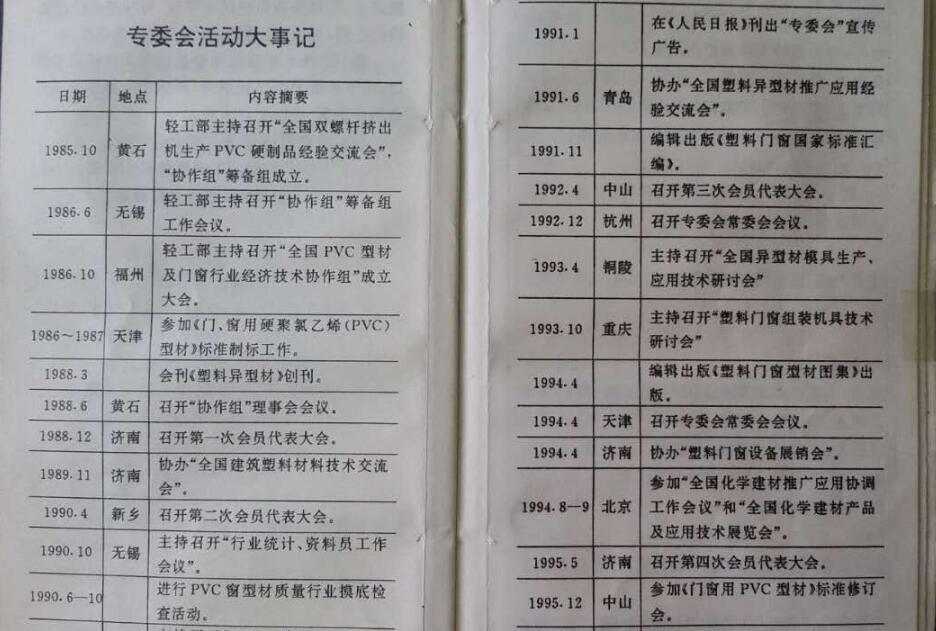 专委会活动大事记
日期 地点 内容摘要
1985.10 黄石 轻工部主持召开“全国双螺杆挤出
机生产PVC硬制品经验交流会”,
“协作组”筹备组成立。
1986.6 无锡 轻工部主持召开“协作组”筹备组
工作会议。
1986.10 福州 轻工部主持召开“全国PVC型材
及门窗行业经济技术协作组”成立
大会。
1986～1987 天津 参加《门、窗用硬聚氯乙烯(PVC)
型材》标准制标工作。
1988.3 会刊《塑料异型材》创刊。
1988.6 黄石 召开“协作组”理事会会议。
1988.12 济南 召开第一次会员代表大会。
1989.11 济南 协办“全国建筑塑料材料技术交流
会”。
1990.4 新乡 召开第二次会员代表大会。
1990.10 无锡 主持召开“行业统计、资料员工作
会议”。
1990.6—10 进行PVC窗型材质量行业摸底检
查活动。
1991.1 在《人民日报》刊出“专委会”宣传
广告。
1991.6 青岛 协办“全国塑料异型材推广应用经
验交流会”。
1991.11 编辑出版《塑料门窗国家标准汇
编》。
1992.4 中山 召开第三次会员代表大会。
1992.12 杭州 召开专委会常委会会议。
1993.4 铜陵 主持召开“全国异型材模具生产、
应用技术研讨会”
1993.10 重庆 主持召开“塑料门窗组装机具技术
研讨会”
1994.4 编辑出版《塑料门窗型材图集》出
版。
1994.4 天津 召开专委会常委会会议。
1994.4 济南 协办“塑料门窗设备展销会”。
1994.8—9 北京 参加“全国化学建材推广应用协调
工作会议”和“全国化学建材产品
及应用技术展览会”。
1995.5 济南 召开第四次会员代表大会。
1995.12 中山 参加《门窗用PVC型材》标准修订
会。